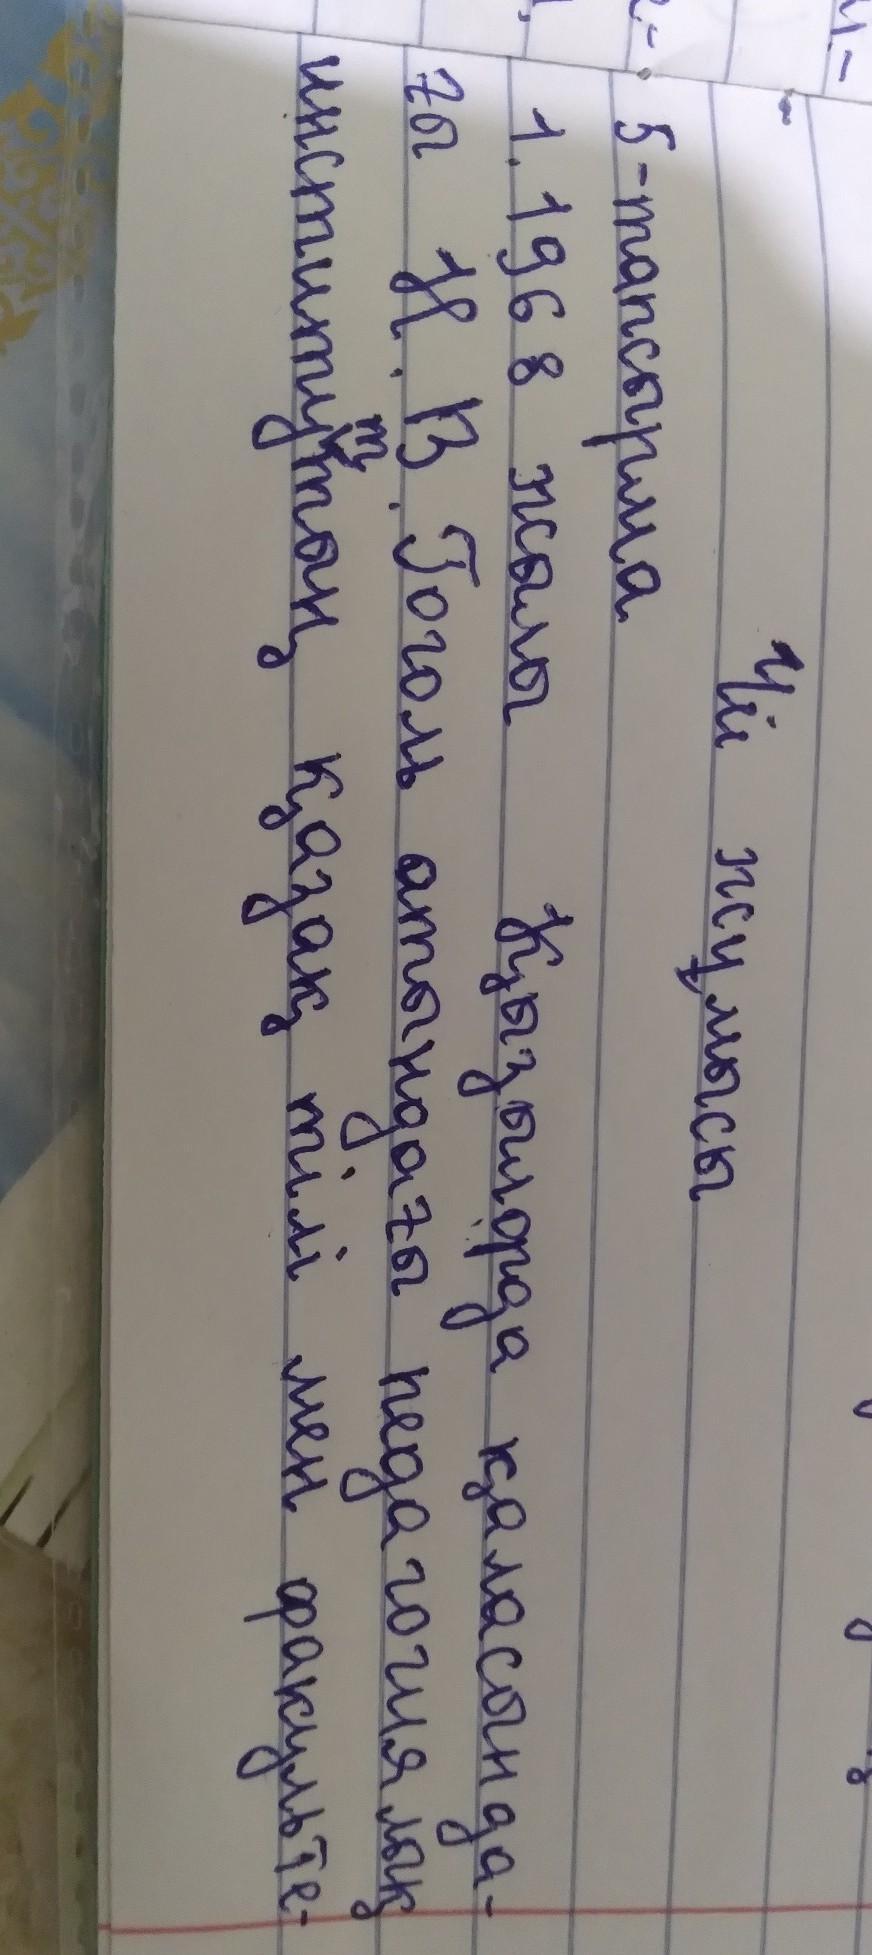 Үй жұмысы
5-тапсырма
1. 1968 жылы Қызылорда қаласында-
ғы Н. В. Гоголь атындағы педагогиялық
институттың қазақ тілі мен факульте-